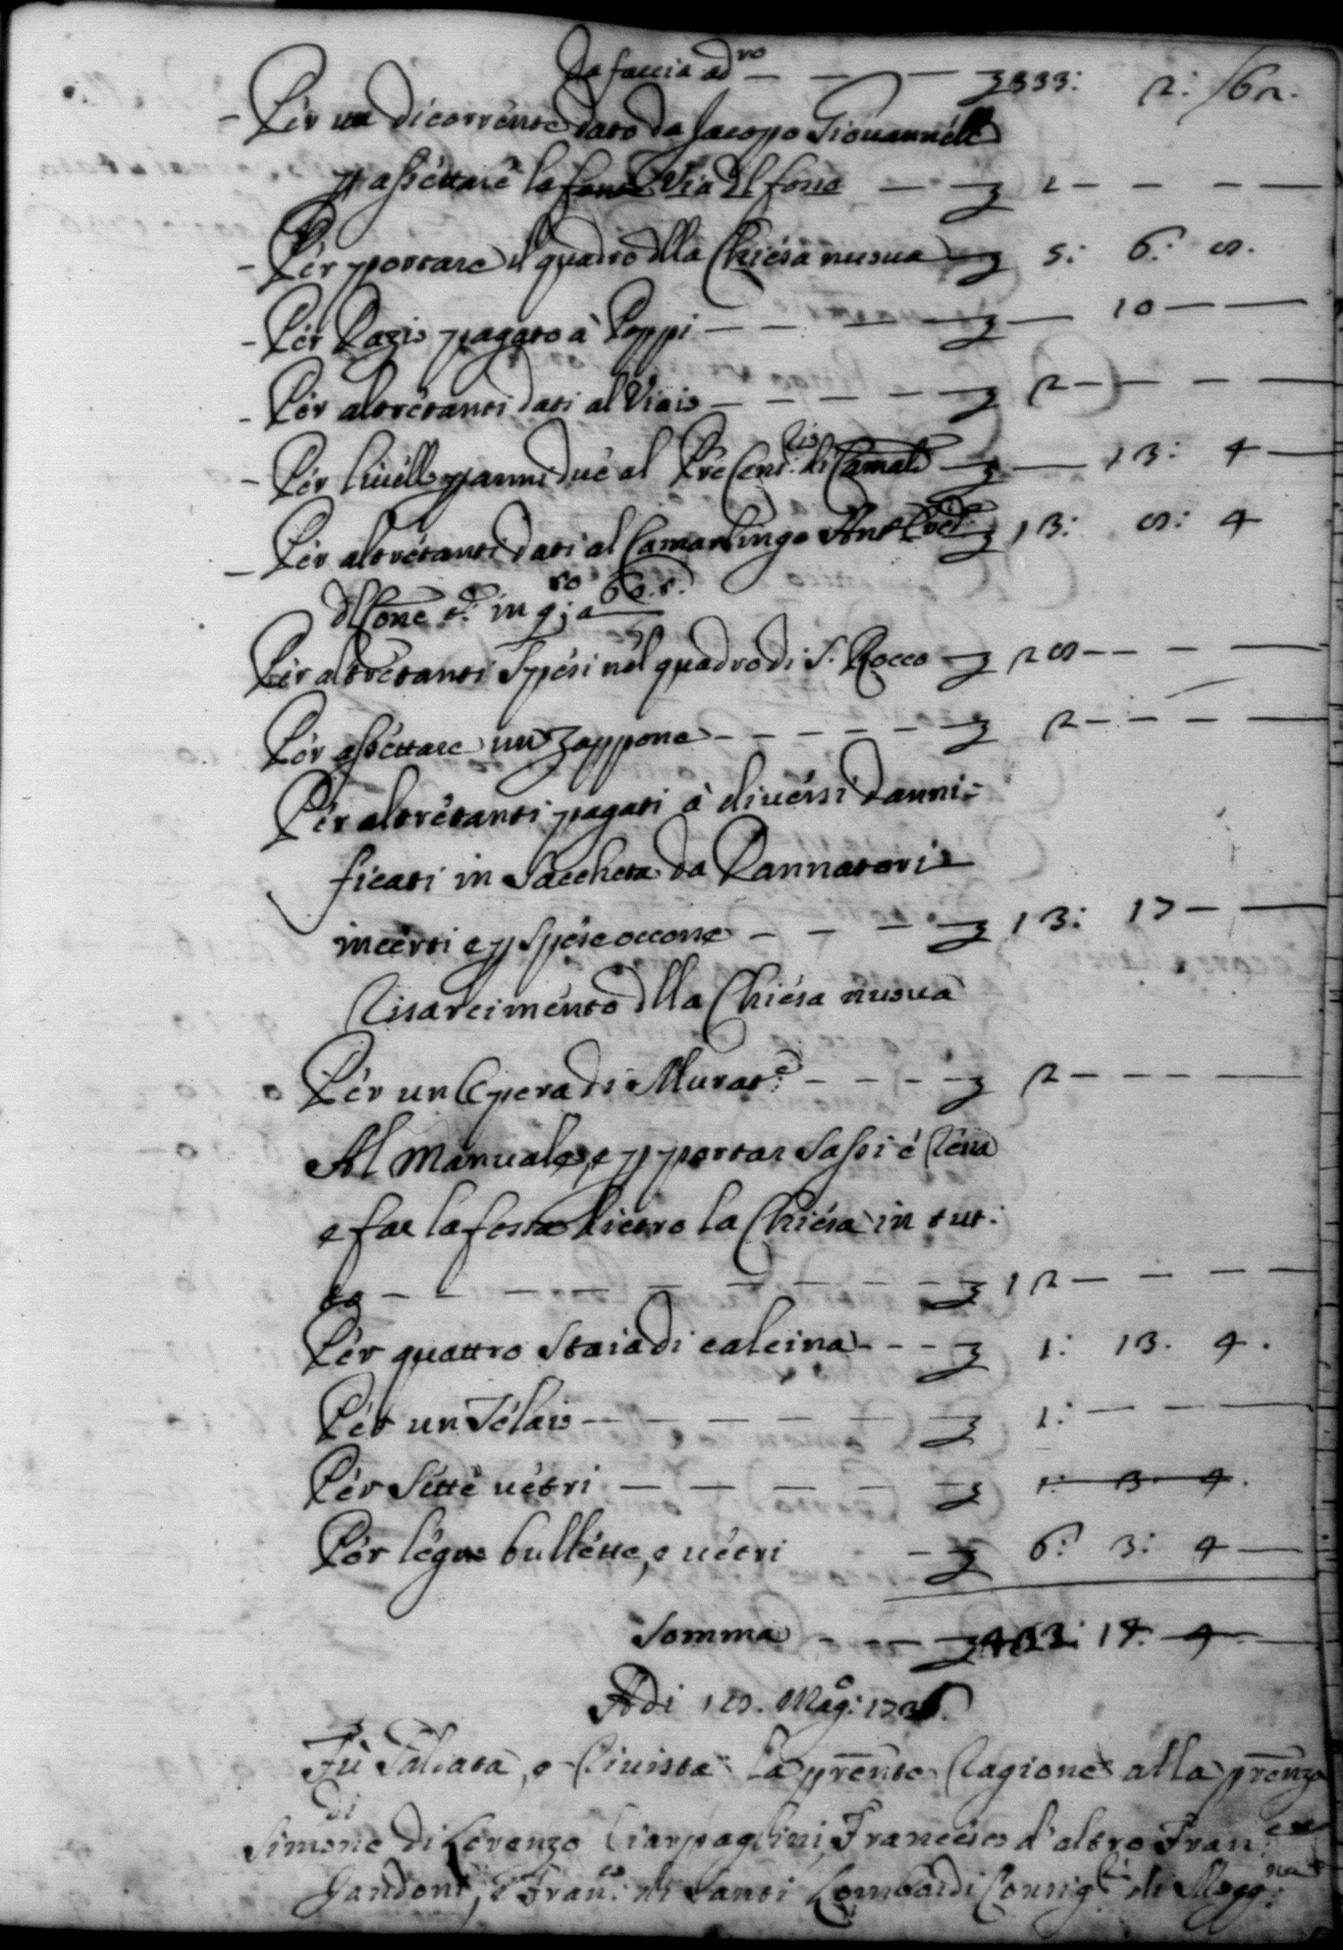 Da faccia ad.ro — — — 333: 2: 62.
- Per un di corrente dato da Jacopo Giovannelli
p assettare la fonte Via del fosso — — 2 — — —
- Per portare il quadro della Chiesa nuova — 5: 6: 8.
- Per Dazio pagato à Poppi — — — — — 10 — —
- Per altretanti dati al Viaio — — — — 2 — — —
- Per livello p anni due al di Camald. — — 13: 4 —
- Per altretanti dati al Camarlingo Ant. — 13: 8: 4
in q.
Per altretanti spesi nel quadro di S. Rocco — 28 — — —
Per assettare un zappone — — — — — 2 — — —
Per altretanti pagati à diversi danni=
ficati in Saccheta da Dannatori
incerti e p spese occorse — — — 13: 17 — —
Risarcimento della Chiesa nuova
Per un Opera di Murat.e — — — — 2 — — —
Al Manuale, e p portar sassi è rena
e far la fossa dietro la Chiesa in tut:
to — — — — — — — — 12 — — —
Per quattro staia di calcina — — — 1: 13. 4.
Per un Telaio — — — — — — 1: — —
Per sette vetri — — — — — — 1: 3. 4.
Per legno bullette, e vetri — 6: 3: 4 —
Somma — — — 14: 4
Adi 18. Mag.o:
Fù Saldata, e Rivista la prente Ragione alla prenza
di
Simone di Lorenzo Ciarpaglini, Francesco d'altro Fran.co
Gandoni, e Fran.co di Santi Lombardi Consig.ri di Magg.na